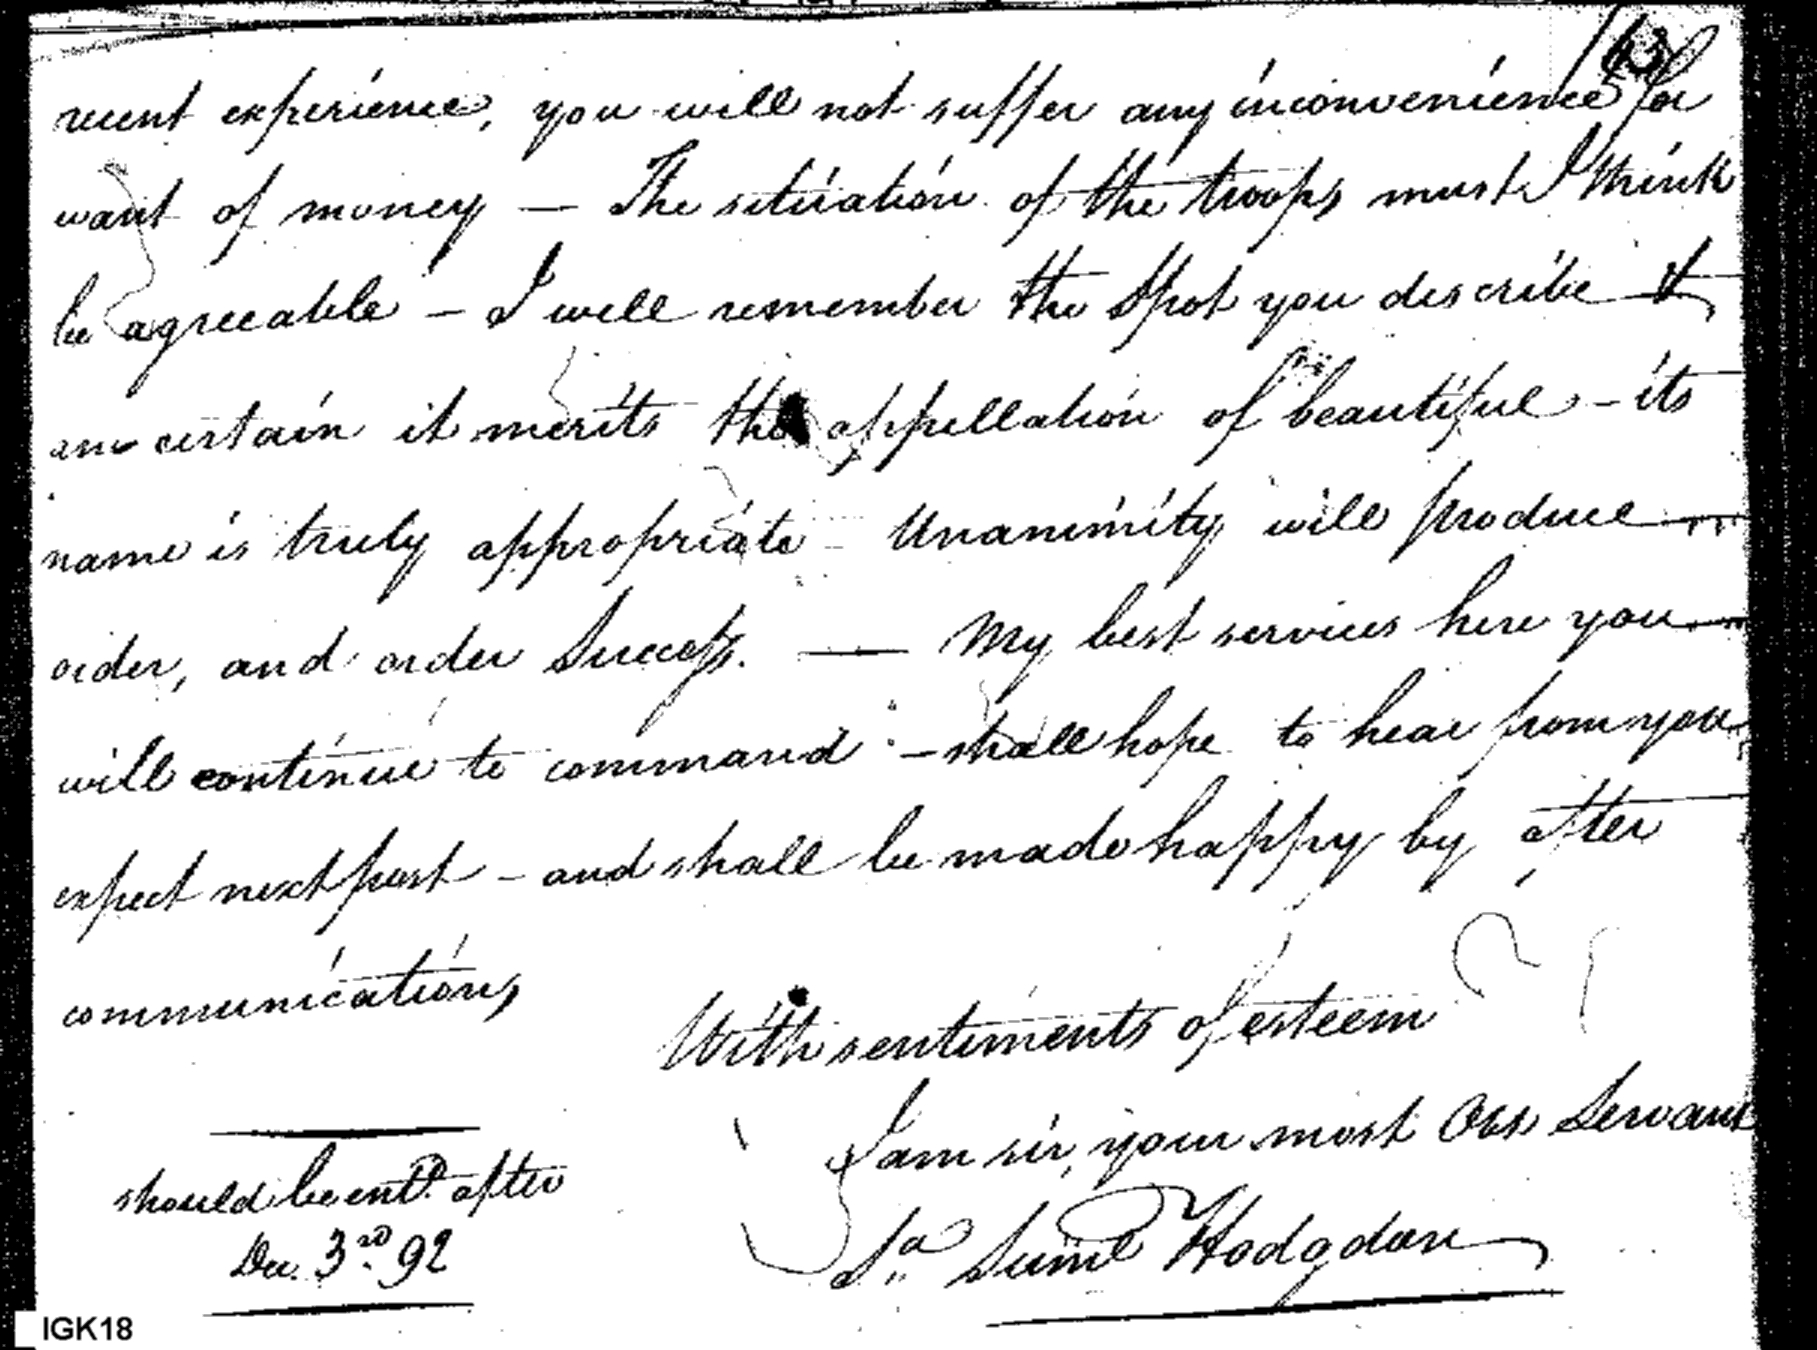 163
recent experience, you will not suffer any inconvenience for
want of money — The situation of the troops must I think
be agreeable — I well remember the Spot you describe &
am certain it merits the appellation of beautiful — its
name is truly appropriate — Unanimity will produce
order, and order Success. — My best services here you
will continue to command — shall hope to hear from you
expect next post — and shall be made happy by after
communications
With sentiments of esteem
I am sir, your most Obt Servant
Saml Hodgdon
should be entd. after
Dec. 3rd. 92
IGK18